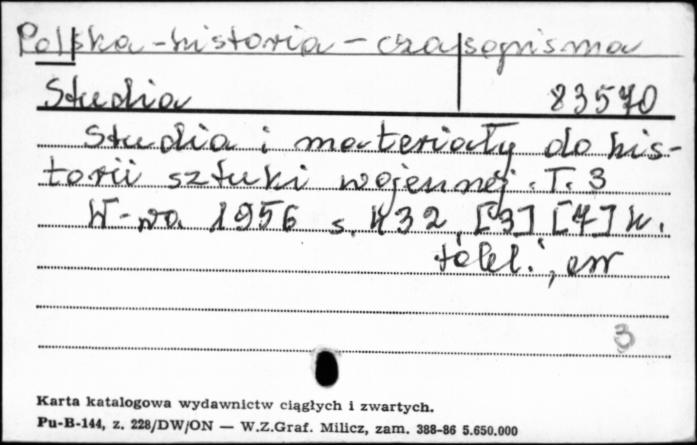 Polska - historia - czasopisma
Studia 83570
Studia i materiały do his-
torii sztuki wojennej. T. 3
W-wa 1956 s. 432, [3] [4] k.
tabl.,
3
Karta katalogowa wydawnictw ciągłych i zwartych.
Pu-B-144, z. 228/DW/ON — W.Z.Graf. Milicz, zam. 388-86 5.650.000